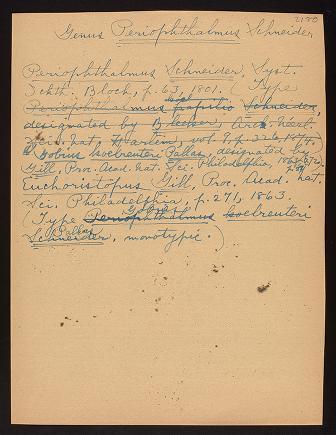 2180
Genus Periophthalmus Schneider
Periophthalmus Schneider, Syst.
Ichth. Bloch, p. 63, 1801. (Type
Periophthalmus papilio Schneider,
designated by Bleeker, Arch. Néerl.
Sci. Nat., Harlem, vol. 9, p. 326, 1874.
Gobius koelreuteri Pallas, designated by
Gill, Proc. Acad. Nat. Sci. Philadelphia, 1863,
Euchoristopus Gill, Proc. Acad. Nat.
Sci. Philadelphia, p. 271, 1863.
(Type Periophthalmus koelreuteri
Pallas
Schneider, monotypic.)